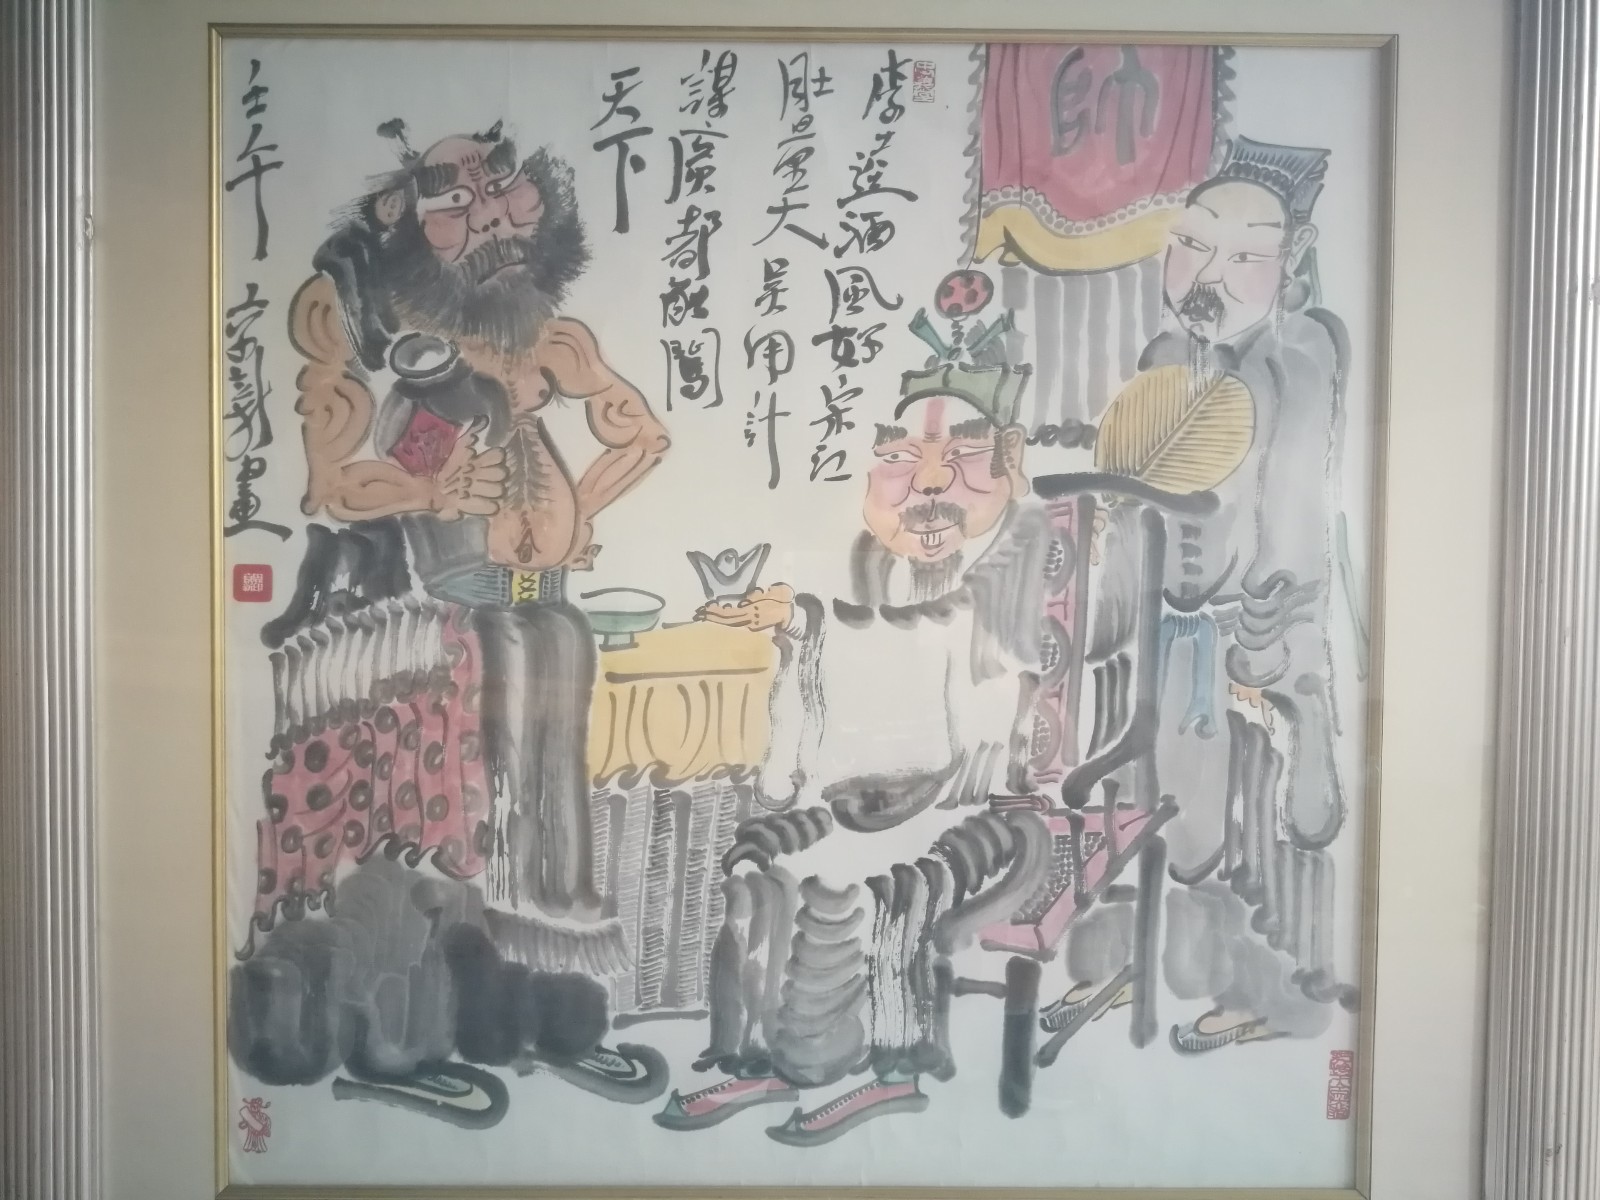 李逵酒風好宋江
肚量大吴用計
謀廣都能闖
天下
壬午
畫
帥